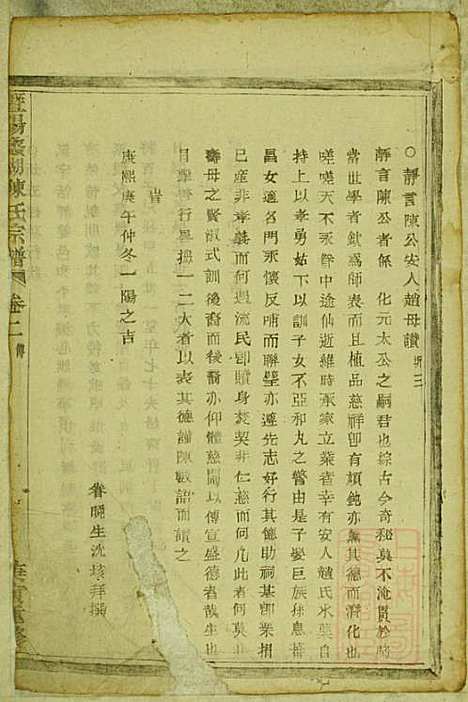 ○靜言陳公安人趙母讚 班三
靜言陳公者係 化元太公之嗣君也綜古今奇秘莫不淹貫於時
當世學者欽爲師表而且植品慈祥卽有頑鈍亦薰其德而潛化也
嗟嗟天不永眷中途仙逝維時承家立業者幸有安人趙氏水蘗自
持上以孝勇姑下以訓子女不亞和丸之警由是子孌巨族孫息番
昌女適名門永懷反哺而聯璧亦遵先志好行其德助祠基卽業捐
己產非孝義而何遇流民卽贖身焚契非仁慈而何凡此何莫非
壽母之賢淑式訓後裔而後裔亦仰體慈闈以傳宣盛德者哉生也
目擊孝行畧摘一二大者以表其德謹陳數語而讚之
旹
康熙庚午仲冬一陽之吉
眷晚生沈 拜撰
暨陽 湖陳氏宗譜 卷二 傳